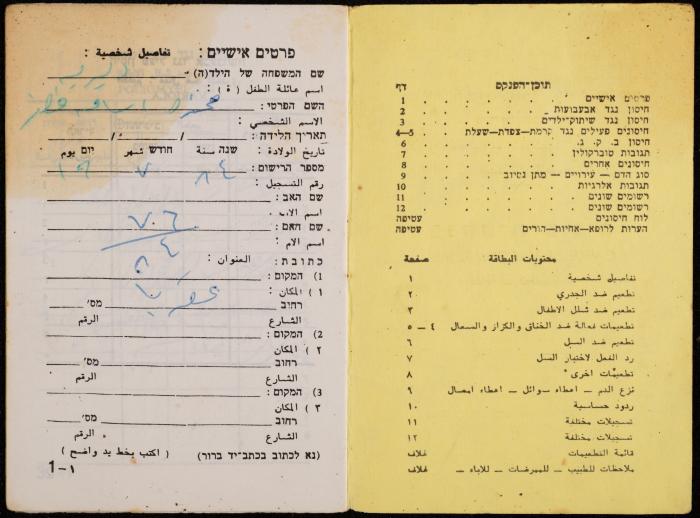 תוכן-הפנקס דף
פרטים אישיים 1
חיסון נגד אבעבועות 2
חיסון נגד שיתוק-ילדים 3
חיסונים פעילים נגד קרמת—צפדת—שעלת 4—5
חיסון ב. ק. ג. 6
תגובות טוברקולין 7
חיסונים אחרים 8
סוג הדם — עירויים — מתן נסיוב 9
תגובות אלרגיות 10
רשומים שונים 11
רשומים שונים 12
לוח חיסונים עטיפה
הערות לרופא—אחיות—הורים עטיפה
محتويات البطاقة صفحة
تفاصيل شخصية ١
تطعيم ضد الجدري ٢
تطعيم ضد شلل الاطفال ٣
تطعيمات فعالة ضد الخناق والكزاز والسعال ٤ — ٥
تطعيم ضد السل ٦
رد الفعل لاختبار السل ٧
تطعيمات اخرى ٨
نزع الدم — اعطاء سوائل — اعطاء امصال ٩
ردود حساسية ١٠
تسجيلات مختلفة ١١
تسجيلات مختلفة ١٢
قائمة التطعيمات غلاف
ملاحظات للطبيب — للممرضات — للاباء — غلاف
פרטים אישיים : تفاصيل شخصية :
שם המשפחה של הילד(ה)
اسم عائلة الطفل ( ة ) :
השם הפרטי :
الاسم الشخصي :
תאריך הלידה : / /
تاريخ الولادة : שנה سنة חודש شهر יום يوم
מספר הרישום : ٨٤ ٧ ١٩
رقم التسجيل :
שם האב :
اسم الاب :
שם האם : ٧٠٦
اسم الام : ٨٤
כתובת : العنوان :
1) המקום :
١ ) المكان :
רחוב מס'
الشارع الرقم
2) המקום :
٢ ) المكان
רחוב מס'
الشارع الرقم
3) המקום :
٣ ) المكان
רחוב מס'
الشارع الرقم
(נא לכתוב בכתב-יד ברור) ( اكتب بخط يد واضح )
1-١